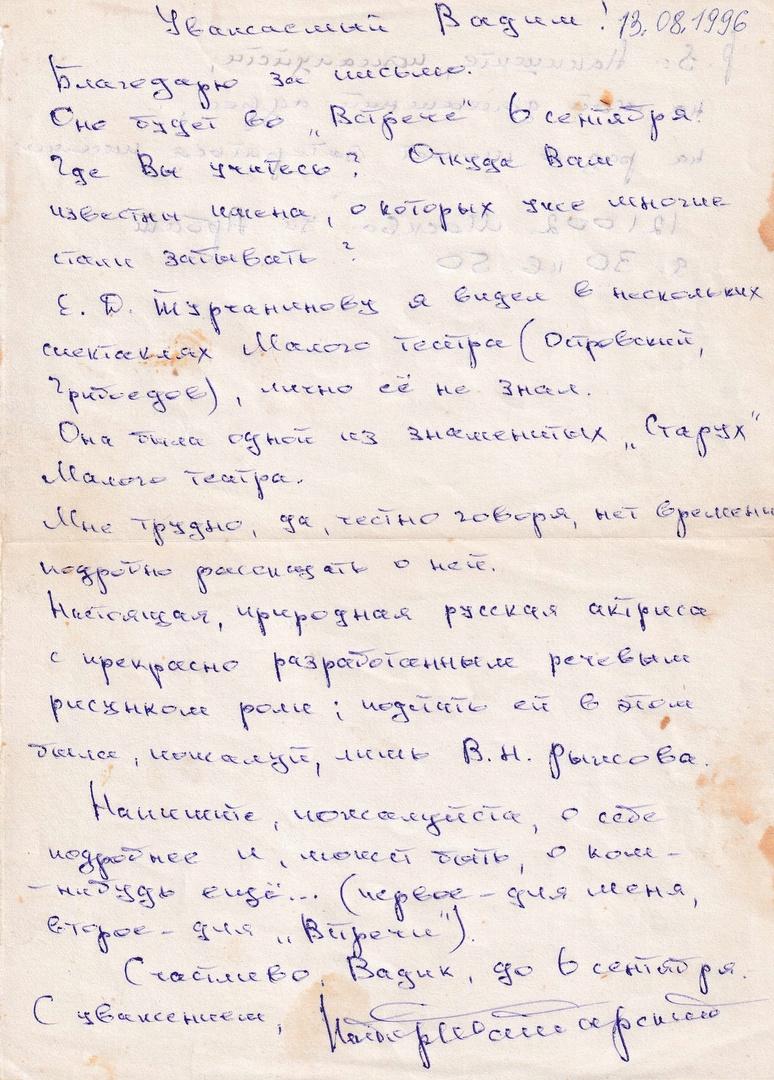 Уважаемый Вадим! 13.08.1996
Благодарю за письмо.
Оно будет во „Встрече" 6 сентября.
Где Вы учитесь? Откуда Вам
известны имена, о которых уже многие
стали забывать?
Е. Д. Турчанинову я видел в нескольких
спектаклях Малого театра (Островский,
Грибоедов), лично её не знал.
Она была одной из знаменитых „Старух"
Малого театра.
Мне трудно, да, честно говоря, нет времени
подробно рассказать о ней.
Настоящая, природная русская актриса
с прекрасно разработанным речевым
рисунком роли; подстать ей в этом
была, пожалуй, лишь В. Н. Рыжова.
Напишите, пожалуйста, о себе
подробнее и, может быть, о ком-
-нибудь ещё... (первое - для меня,
второе - для „Встречи").
Счастливо, Вадик, до 6 сентября.
С уважением,